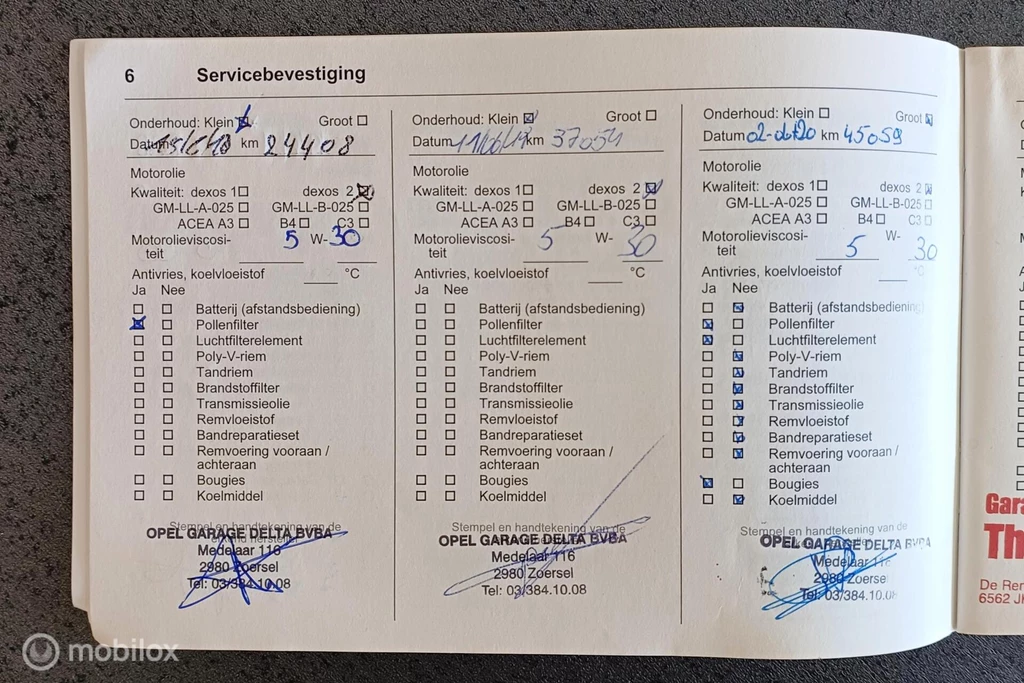 6 Servicebevestiging
Onderhoud: Klein Groot
Datum km 24408
Motorolie
Kwaliteit: dexos 1 dexos 2
GM-LL-A-025 GM-LL-B-025
ACEA A3 B4 C3
Motorolieviscosi- 5 W-30
teit
Antivries, koelvloeistof °C
Ja Nee
Batterij (afstandsbediening)
Pollenfilter
Luchtfilterelement
Poly-V-riem
Tandriem
Brandstoffilter
Transmissieolie
Remvloeistof
Bandreparatieset
Remvoering vooraan /
achteraan
Bougies
Koelmiddel
Stempel en handtekening van de
OPEL GARAGE DELTA BVBA
Medelaar 116
2980 Zoersel
Tel: 03/384.10.08
Onderhoud: Klein Groot
Datum km 37054
Motorolie
Kwaliteit: dexos 1 dexos 2
GM-LL-A-025 GM-LL-B-025
ACEA A3 B4 C3
Motorolieviscosi- 5 W- 30
teit
Antivries, koelvloeistof °C
Ja Nee
Batterij (afstandsbediening)
Pollenfilter
Luchtfilterelement
Poly-V-riem
Tandriem
Brandstoffilter
Transmissieolie
Remvloeistof
Bandreparatieset
Remvoering vooraan /
achteraan
Bougies
Koelmiddel
Stempel en handtekening van de
OPEL GARAGE DELTA BVBA
Medelaar 116
2980 Zoersel
Tel: 03/384.10.08
Onderhoud: Klein Groot
Datum km 45059
Motorolie
Kwaliteit: dexos 1 dexos 2
GM-LL-A-025 GM-LL-B-025
ACEA A3 B4 C3
Motorolieviscosi- 5 W- 30
teit
Antivries, koelvloeistof °C
Ja Nee
Batterij (afstandsbediening)
Pollenfilter
Luchtfilterelement
Poly-V-riem
Tandriem
Brandstoffilter
Transmissieolie
Remvloeistof
Bandreparatieset
Remvoering vooraan /
achteraan
Bougies
Koelmiddel
Stempel en handtekening van de
OPEL GARAGE DELTA BVBA
Medelaar 116
2980 Zoersel
Tel: 03/384.10.08
Gara
Th
De Ren
6562 JH
mobilox